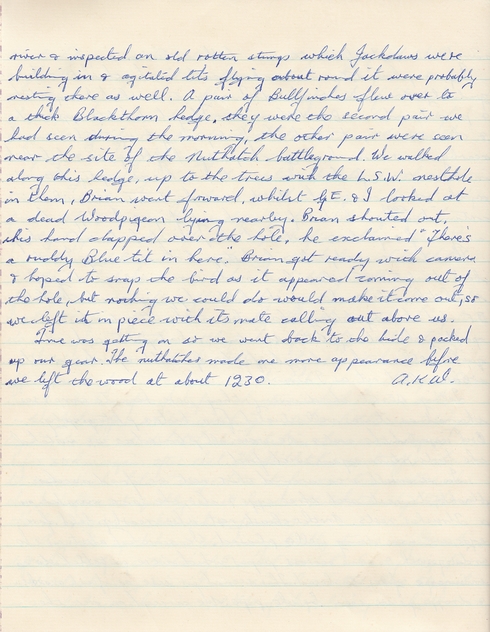 river & inspected an old rotten stump which Jackdaws were
building in & agitated tits flying about round it were probably
nesting there as well. A pair of Bullfinches flew over to
a thick Blackthorn hedge, they were the second pair we
had seen during the morning, the other pair were seen
near the site of the Nuthatch battleground. We walked
along this hedge, up to the trees with the L.S.W. nesthole
in them, Brian went forward, whilst G.E. & I looked at
a dead Woodpigeon lying nearby. Brian shouted out,
his hand clapped over the hole, he exclaimed "There's
a ruddy Blue tit in here. Brian got ready with camera
& hoped to snap the bird as it appeared coming out of
the hole, but nothing we could do would make it come out, so
we left it in piece with its mate calling out above us.
Time was getting on so we went back to the hide & packed
up our gear. The nuthatches made one more appearance before
we left the wood at about 1230. A.K.W.